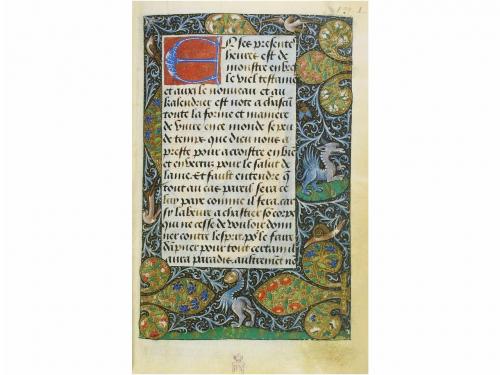 En ses presente
heures est de
monstre en bref
le viel testame
et aussi le nouveau et au
kalendrier est note a chascun
toute la forme et maniere
de vivre en ce monde se peu
de temps que dieu nous a
preste pour acroistre en bie
en vertus pour le salut de
lame. Et fault entendre que
tout au cas pareil sera ce
luy paye comme il fera. car
sy labeure a chastier so corps
qui ne cesse de vouloir don
ner contre lesprit. po le faire
dapner pour tout certain il
aura paradis. autrement no